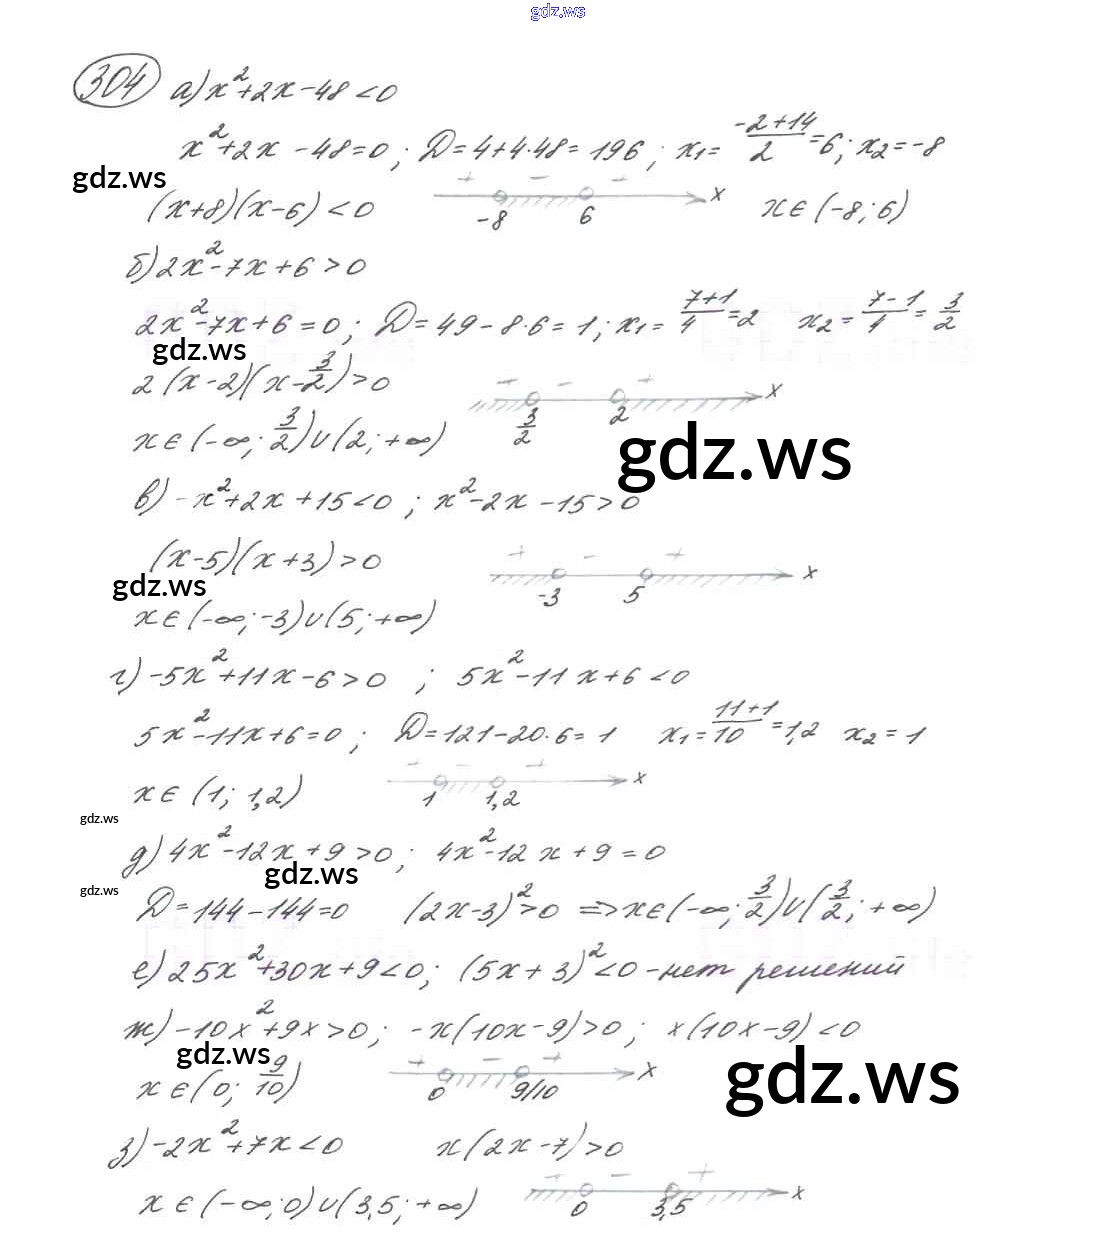 gdz.ws
304 а) x²+2x-48<0
x²+2x-48=0; D=4+4·48=196; x₁=(-2+14)/2=6; x₂=-8
gdz.ws
(x+8)(x-6)<0 + - + x -8 6 x∈(-8;6)
б) 2x²-7x+6>0
2x²-7x+6=0; D=49-8·6=1; x₁=(7+1)/4=2 x₂=(7-1)/4=3/2
gdz.ws
2(x-2)(x-3/2)>0 + - + x 3/2 2
x∈(-∞;3/2)∪(2;+∞)
gdz.ws
в) -x²+2x+15<0; x²-2x-15>0
(x-5)(x+3)>0 + - + x -3 5
gdz.ws
x∈(-∞;-3)∪(5;+∞)
г) -5x²+11x-6>0; 5x²-11x+6<0
5x²-11x+6=0; D=121-20·6=1 x₁=(11+1)/10=1,2 x₂=1
x∈(1; 1,2) + - + x 1 1,2
gdz.ws
д) 4x²-12x+9>0; 4x²-12x+9=0
gdz.ws
gdz.ws
D=144-144=0 (2x-3)²>0 => x∈(-∞;3/2)∪(3/2;+∞)
е) 25x²+30x+9<0; (5x+3)²<0 - нет решений
ж) -10x²+9x>0; -x(10x-9)>0; x(10x-9)<0
gdz.ws
x∈(0; 9/10) + - + x 0 9/10
gdz.ws
з) -2x²+7x<0 x(2x-7)>0
x∈(-∞;0)∪(3,5;+∞) + - + x 0 3,5